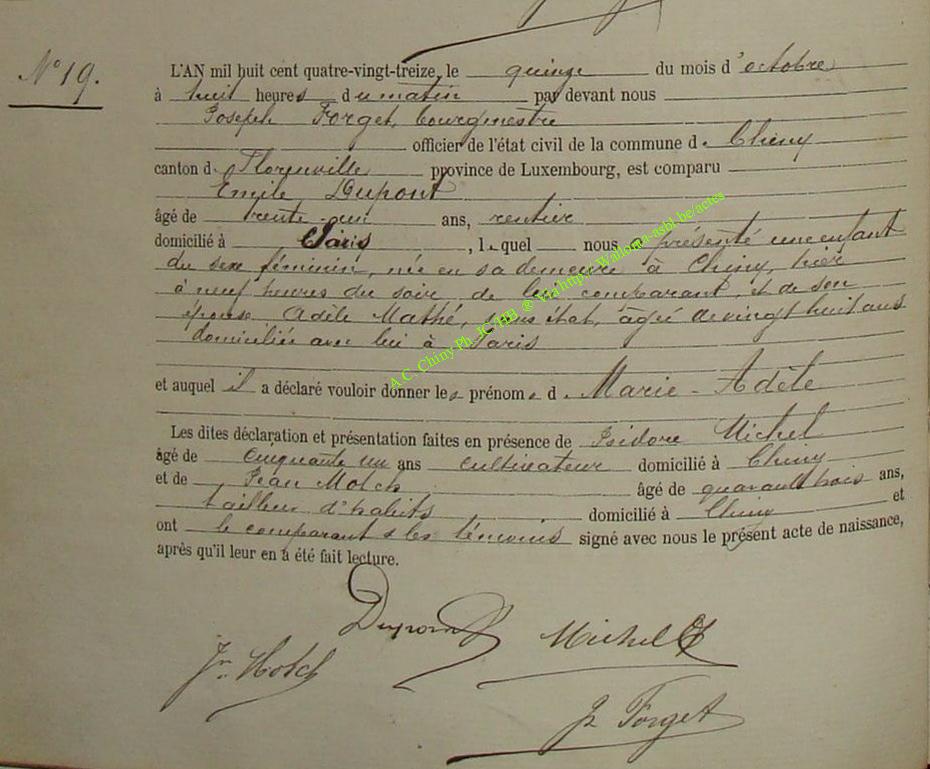 N° 19.
L'AN mil huit cent quatre-vingt-treize, le quinze du mois d'octobre
à huit heures du matin par devant nous
Joseph Forget, bourgmestre
officier de l'état civil de la commune de Chiny
canton de Florenville province de Luxembourg, est comparu
Emile Dupont
âgé de trente-un ans, rentier
domicilié à Paris, lequel nous a présenté une enfant
du sexe féminin, née en sa demeure à Chiny, hier
à neuf heures du soir, de lui comparant, et de son
épouse Adèle Mathé, sans état, âgée de vingt huit ans
domiciliée avec lui à Paris
et auquel il a déclaré vouloir donner les prénoms de Marie-Adèle
Les dites déclaration et présentation faites en présence de Isidore Michel
âgé de cinquante un ans cultivateur domicilié à Chiny
et de Jean Molch âgé de quarante trois ans,
tailleur d'habits domicilié à Chiny et
ont le comparant & les témoins signé avec nous le présent acte de naissance,
après qu'il leur en a été fait lecture.
Dupont Michel
Jn. Molch
J. Forget
A.C. Chiny-Ph. JC/HB @ Via http:// Wallonia-asbl-be/actes